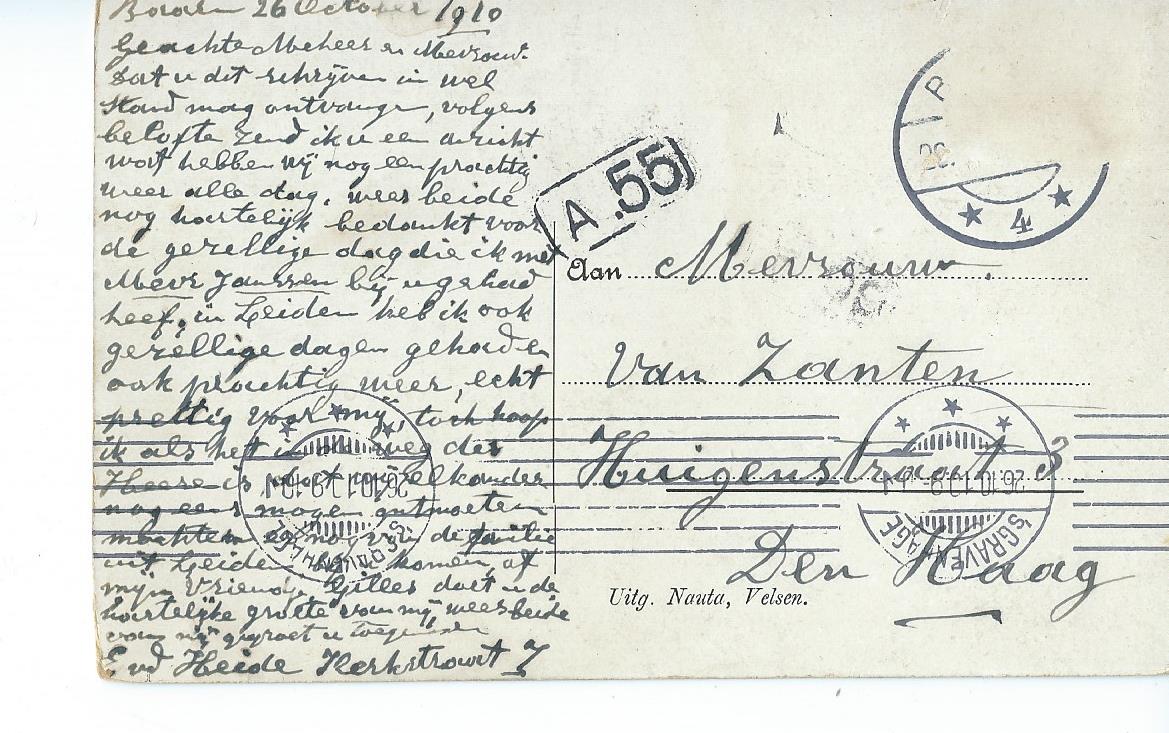 Baarn 26 October 1910
Geachte Meheer en Mevrouw.
Dat u dit schrijven in wel
stand mag ontvangen, volgens
belofte zend ik u een ansicht
wat hebben wij nog een prachtig
weer alle dag, wees beide
nog hartelijk bedankt voor
de gezellige dag die ik met
Mevr Janssen bij u gehad
heef, in Leiden heb ik ook
gezellige dagen gehad en
ook prachtig weer, echt
prettig voor mij, toch hoop
ik als het weg des
Heere is dat wij elkander
nog eens mogen ontmoeten
mochten er nog van de familie
uit Leiden komen, of
mijn Vriendin Gilles doet u de
hartelijke groete van mij wees beide
van mij gegroet u toegenegen
E vd Heide Kerkstraat 7
A .55
4
Aan Mevrouw.
Van Zanten
Huigenstraat 3
Den Haag
26.10.10
'S GRAVENHAGE
26.10.10
'S GRAVENHAGE
Uitg. Nauta, Velsen.